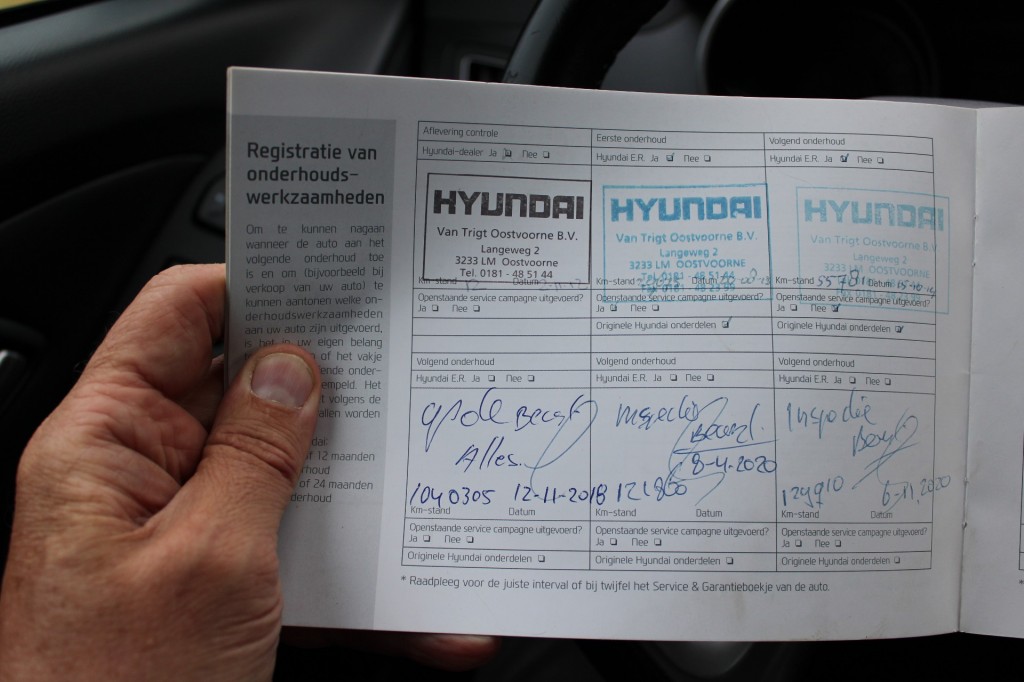 Registratie van
onderhouds-
werkzaamheden
Om te kunnen nagaan
wanneer de auto aan het
volgende onderhoud toe
is en om (bijvoorbeeld bij
verkoop van uw auto) te
kunnen aantonen welke on-
derhoudswerkzaamheden
aan uw auto zijn uitgevoerd,
is het in uw eigen belang
of het vakje
ende onder-
empeld. Het
volgens de
allen worden
12 maanden
rhoud
of 24 maanden
derhoud
Aflevering controle
Hyundai-dealer Ja Nee
HYUNDAI
Van Trigt Oostvoorne B.V.
Langeweg 2
3233 LM Oostvoorne
Tel. 0181 - 48 51 44
Km-stand 12 Datum
Openstaande service campagne uitgevoerd?
Ja Nee
Eerste onderhoud
Hyundai E.R. Ja Nee
HYUNDAI
Van Trigt Oostvoorne B.V.
Langeweg 2
3233 LM OOSTVOORNE
Tel. 0181 - 48 51 44
Km-stand Datum
Openstaande service campagne uitgevoerd?
Ja Nee
Originele Hyundai onderdelen
Volgend onderhoud
Hyundai E.R. Ja Nee
HYUNDAI
Van Trigt Oostvoorne B.V.
Langeweg 2
3233 LM OOSTVOORNE
Km-stand Datum
Openstaande service campagne uitgevoerd?
Ja Nee
Originele Hyundai onderdelen
Volgend onderhoud
Hyundai E.R. Ja Nee
Alles.
1040305 12-11-2018
Km-stand Datum
Openstaande service campagne uitgevoerd?
Ja Nee
Originele Hyundai onderdelen
Volgend onderhoud
Hyundai E.R. Ja Nee
Inspectie
8-4-2020
121860
Km-stand Datum
Openstaande service campagne uitgevoerd?
Ja Nee
Originele Hyundai onderdelen
Volgend onderhoud
Hyundai E.R. Ja Nee
Inspectie
6-11-2020
Km-stand Datum
Openstaande service campagne uitgevoerd?
Ja Nee
Originele Hyundai onderdelen
* Raadpleeg voor de juiste interval of bij twijfel het Service & Garantieboekje van de auto.